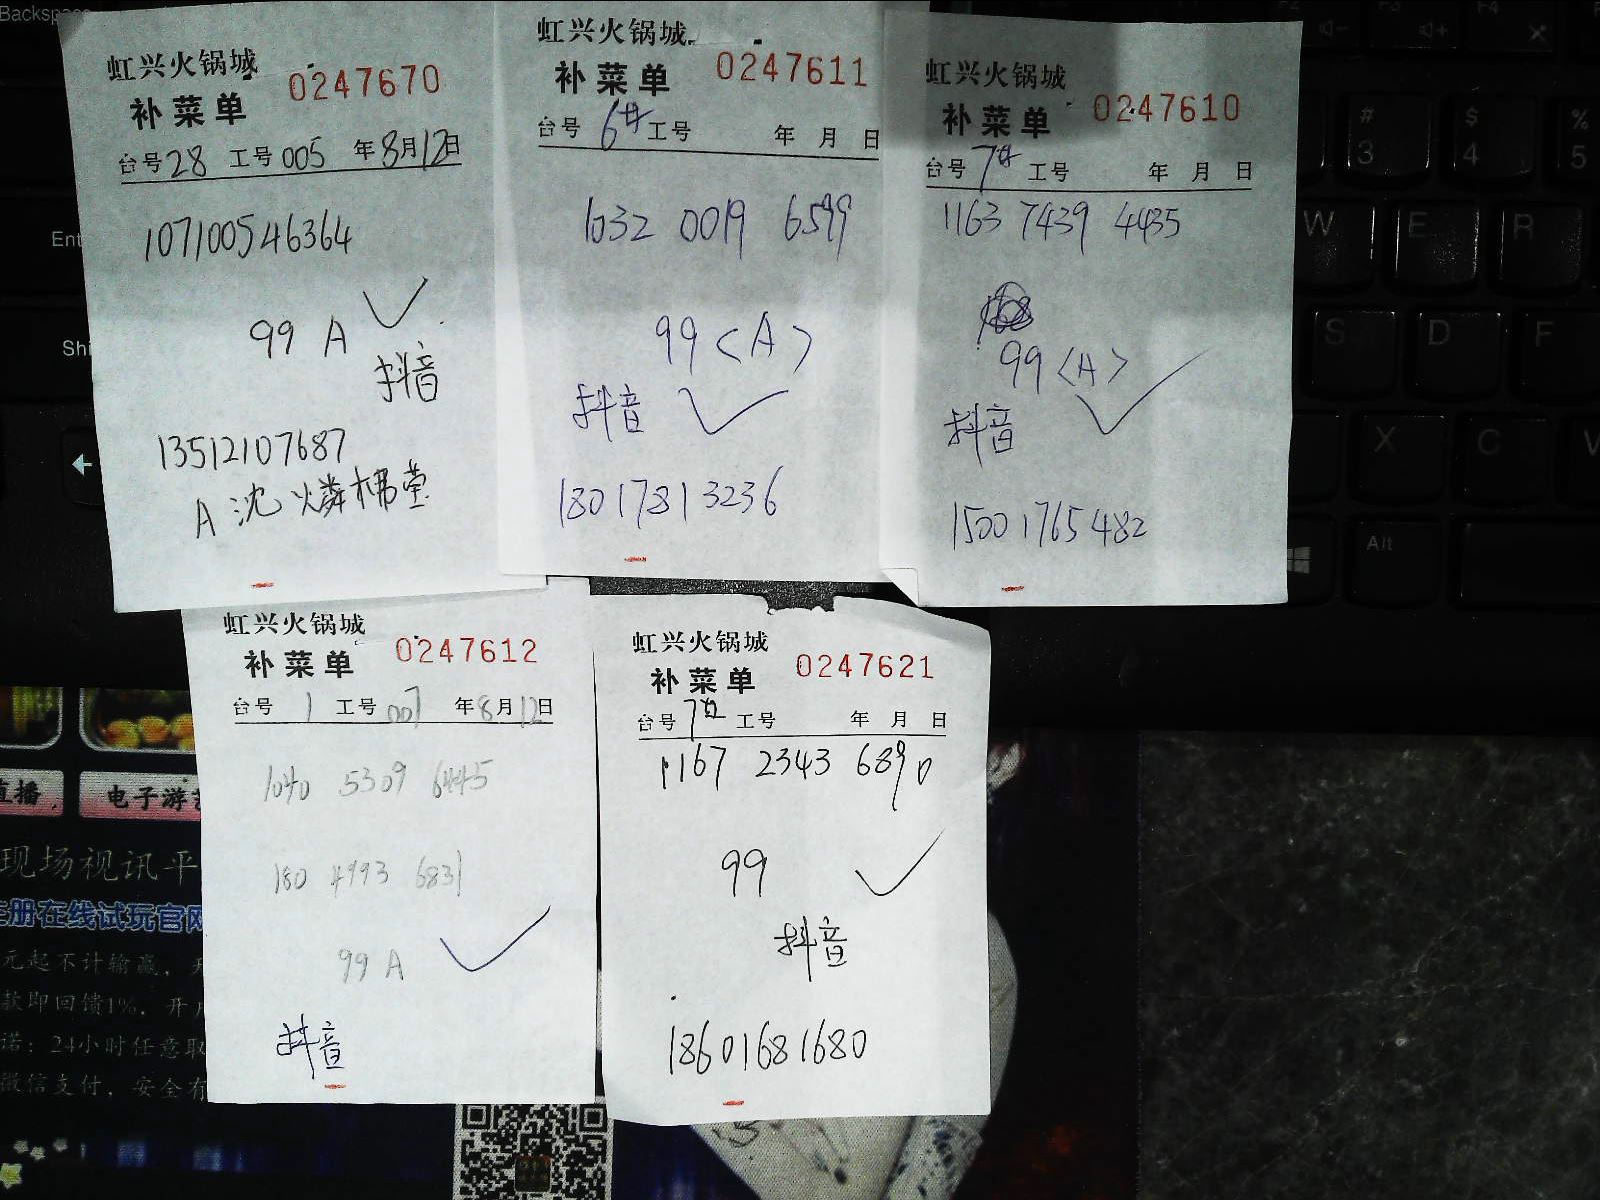 Backspace
虹兴火锅城
补菜单 0247670
台号28 工号005 年8月12日
107100546364
99 A
抖音
13512107687
虹兴火锅城
补菜单 0247611
台号6# 工号 年 月 日
1032 0019 6599
99<A>
抖音
18017813236
虹兴火锅城
补菜单 0247610
台号7# 工号 年 月 日
1163 7439 4435
99<A>
抖音
15001765482
虹兴火锅城
补菜单 0247612
台号 1 工号 007 年8月12日
1040 5309 6445
180 4993 6831
99 A
抖音
虹兴火锅城
补菜单 0247621
台号7# 工号 年 月 日
1167 2343 6890
99
抖音
18601681680
# 3
$ 4
% 5
W E R
S D F
X C
Alt
Ent
Shi
直播
电子游
现场视讯平
册在线试玩官网
元起不计输赢,
款即回馈1%,开
诺:24小时任意取
微信支付,安全有